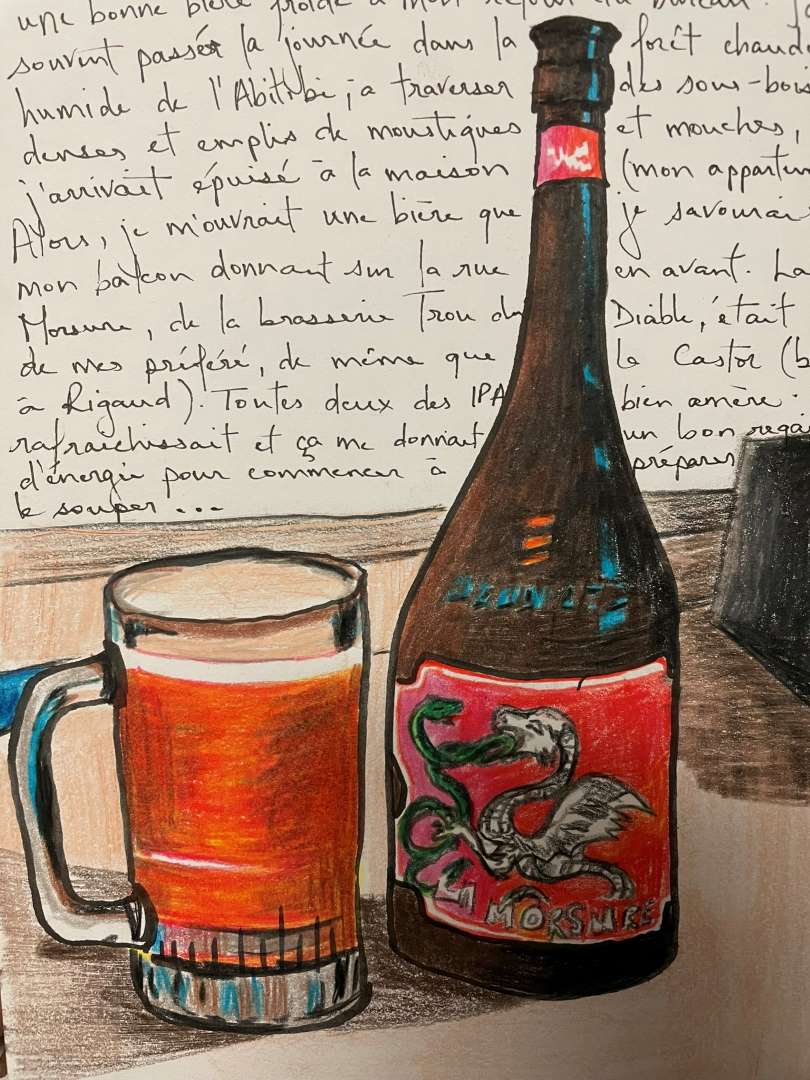 une bonne bière froide à mon retour du bureau.
souvent passér la journée dans la forêt chaude
humide de l'Abitibi; a traverser des sous-bois
denses et emplis de moustiques et mouches,
j'arrivait épuisé à la maison (mon appartem
Alors, je m'ouvrait une bière que je savourais
mon balcon donnant sur la rue en avant. La
Morsure, de la brasserie Trou du Diable, était
de mes préféré, de même que le Castor (b
à Rigaud). Toutes deux des IPA bien amère.
rafraichissait et ça me donnait un bon regai
d'énergie pour commencer à préparer
le souper...
LA MORSURE